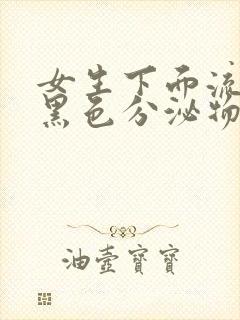 女生下面流
黑色分泌物
油壶宝宝